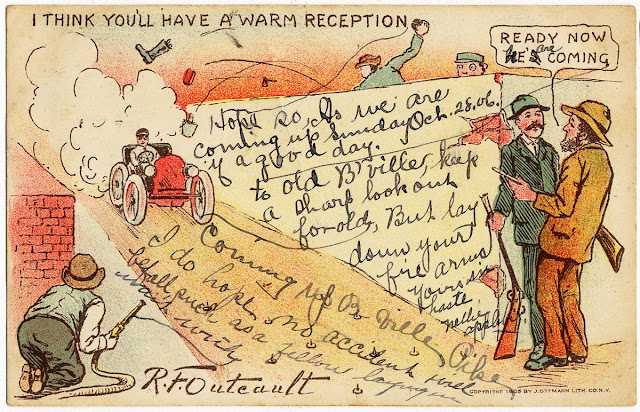 I THINK YOU'LL HAVE A WARM RECEPTION
READY NOW
HE'S are COMING
Hope so, As we are
coming up Sunday Oct. 28.06.
if a good day.
to old B'ville, keep
a sharp lookout
for old, But lay
down your
fire arms
Yours in
haste
Coming up B ville Pike
I do hope no accident will
befall such as a fellow
R.F. Outcault
COPYRIGHT 1905 BY J. OTTMANN LITH. CO. N.Y.